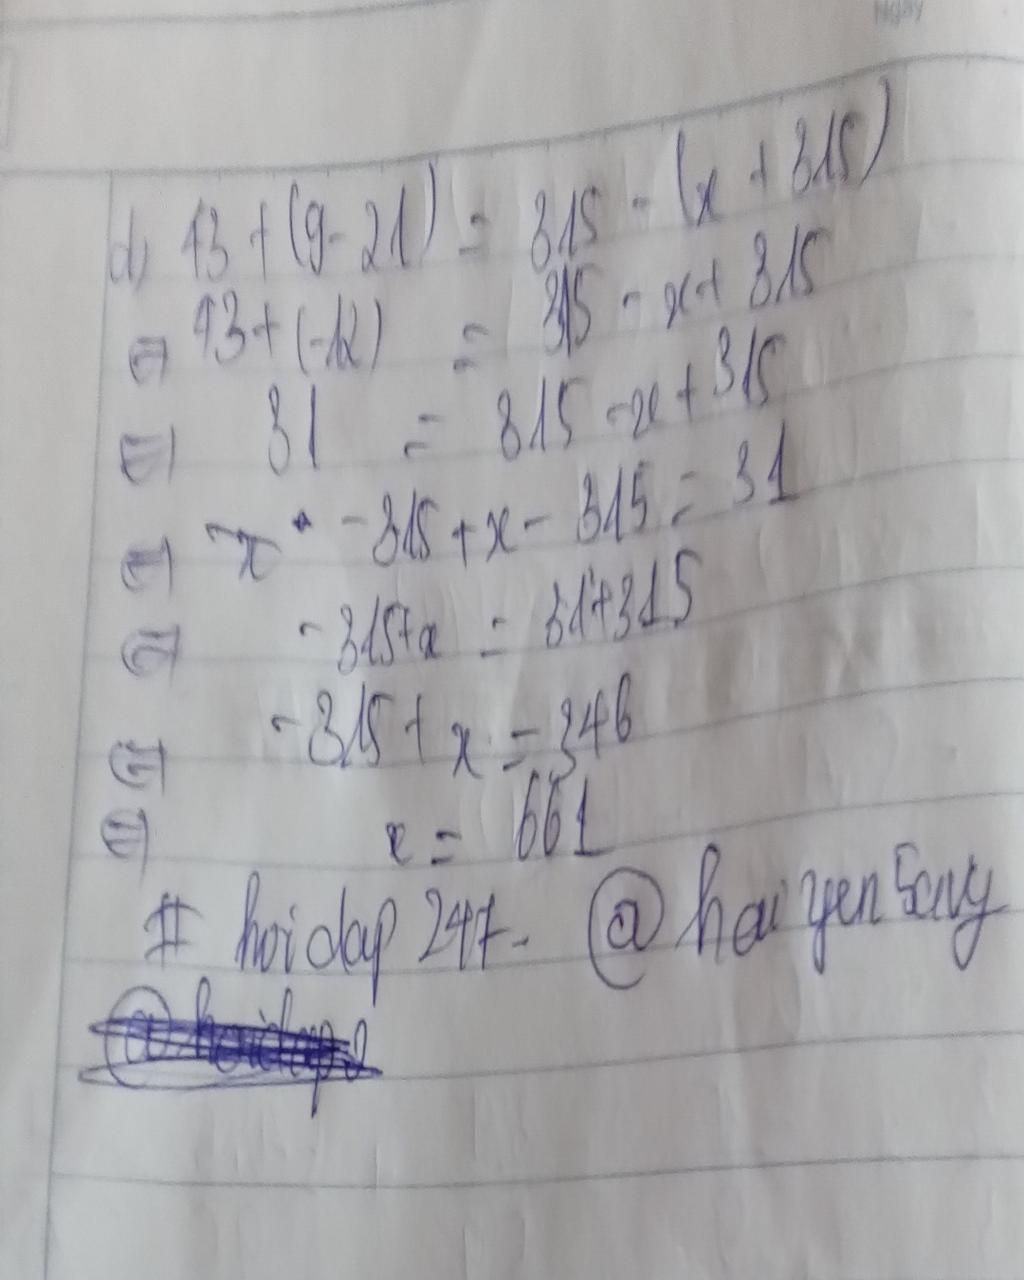 Ngày
d) 43 + (9 - 21) = 315 - (x + 315)
⇔ 43 + (-12) = 315 - x + 315
⇔ 31 = 315 - x + 315
⇔ - 315 + x - 315 = 31
⇔ - 315 + x = 31 + 315
⇔ - 315 + x = 346
⇔ x = 661
# hoidap 247- @ haiyen